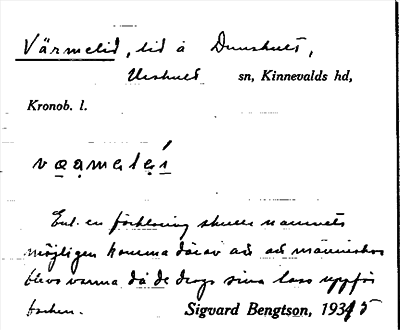 Värmelid, lid å Dunshult,
Urshult sn, Kinnevalds hd,
Kronob. l.
væ̱a̱mele̱í
Enl. en förklaring skulle namnets
möjligen komma därav att att människor
blevo varma då de drogo sina lass uppför
backen. Sigvard Bengtson, 1935